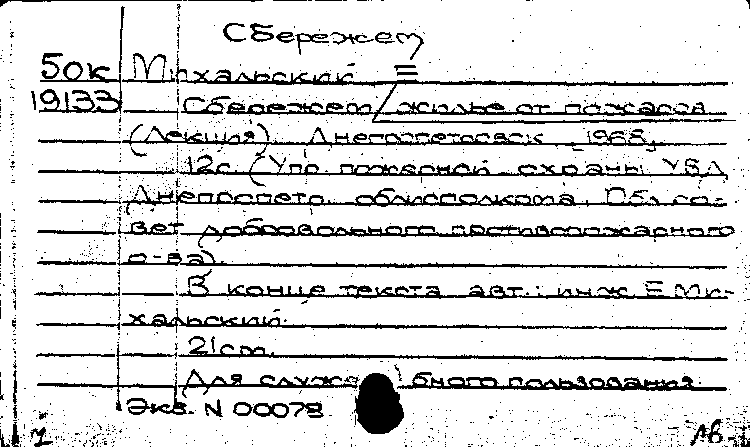 Сбережем
50к Михальский Е
19133 Сбережем жилье от пожаров
(Лекция) Днепропетровск, 1968,
12с. (Упр. пожарной охраны УВД
Днепропетр. облисполкома. Обл со-
вет добровольного противопожарного
о-ва).
В конце текста авт.: инж Е Ми-
хальский.
21cm.
Для служебного пользования.
Экз. N 00078
1 лв